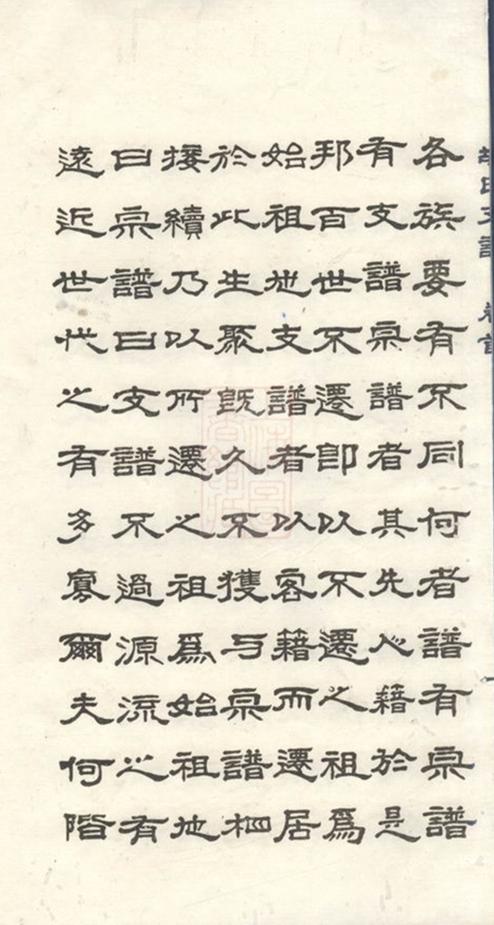 各族要有不同何者譜有宗譜
有支譜宗譜者其先之籍於是
邦百世不遷即以不遷之祖爲
始祖也支譜者以客籍而遷居
於此生聚既久不獲与宗譜相
接續乃以所遷之祖爲始祖也
曰宗譜曰支譜不過源流之有
遠近世代之有多寡爾夫何階